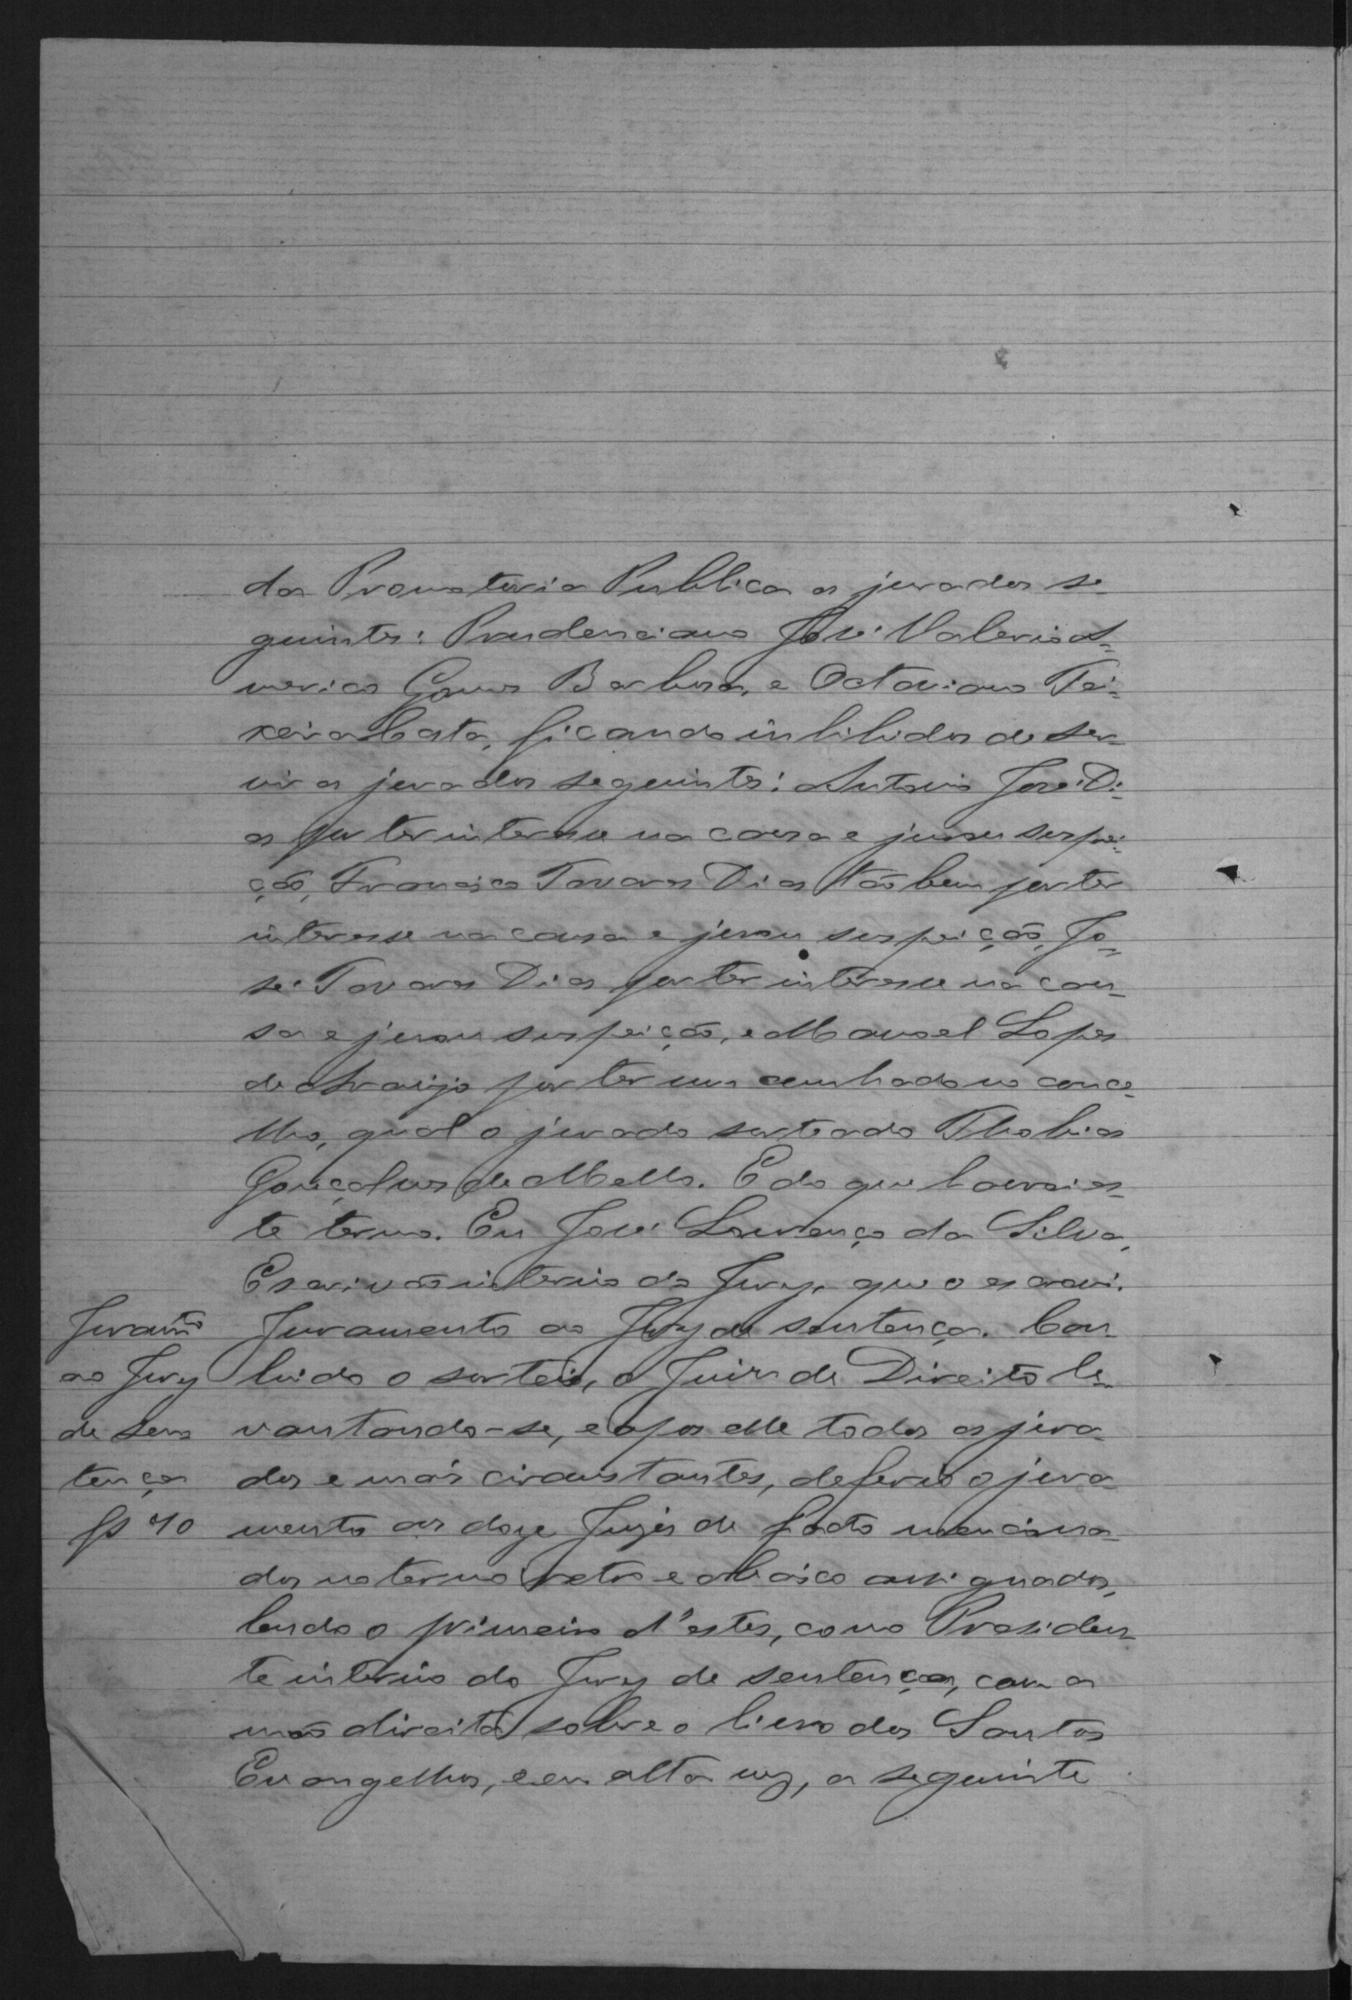 da Promotoria Publica os jurados se-
guintes: Prudenciano José Valerio A-
merico Gomes Barbosa, e Octaviano Tei-
xeira Costa, ficando inhibidos de ser-
vir os jurados seguintes: Antonio José Di-
as por ter interesse na causa e jurou suspei-
ção, Francisco Tavares Dias tão bem por ter
interesse na causa e jurou suspeição, Jo-
sé Tavares Dias por ter interesse na cau-
sa e jurou suspeição, e Manoel Lopes
de Araujo por ter um cunhado no conce-
lho, qual o jurado sorteado Thobias
Gonçalves de Mello. E do que lavrei es-
te termo. Eu José Lourenço da Silva,
Escrivão interino do Jury, que o escrevi.
Juramto
ao Jury
de Sen
tença
fs 40
Juramento ao Jury de sentença. Con-
luido o sorteio, o Juiz de Direito le-
vantando-se, e apos elle todos os jura-
dos e mais circunstantes, deferio o jura-
mento aos doze Juizes de facto menciona-
dos no termo retro e abaixo assignados,
lendo o primeiro d'estes, como Presiden-
te interino do Jury de sentença, com a
mão direita sobre o livro dos Santos
Evangelhos, e em alta voz, a seguinte